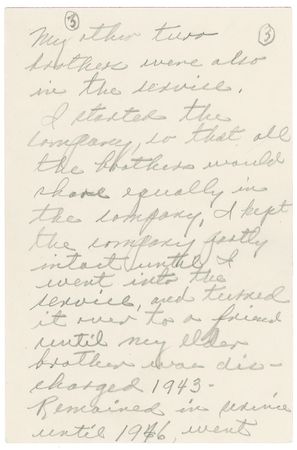 3 3
My other two
brothers were also
in the service.
I started the
company, so that all
the brothers would
share equally in
the company, I kept
the company partly
intact until I
went into the
service, and turned
it over to a friend
until my elder
brother was dis-
charged 1943-
Remained in service
until 1946, went